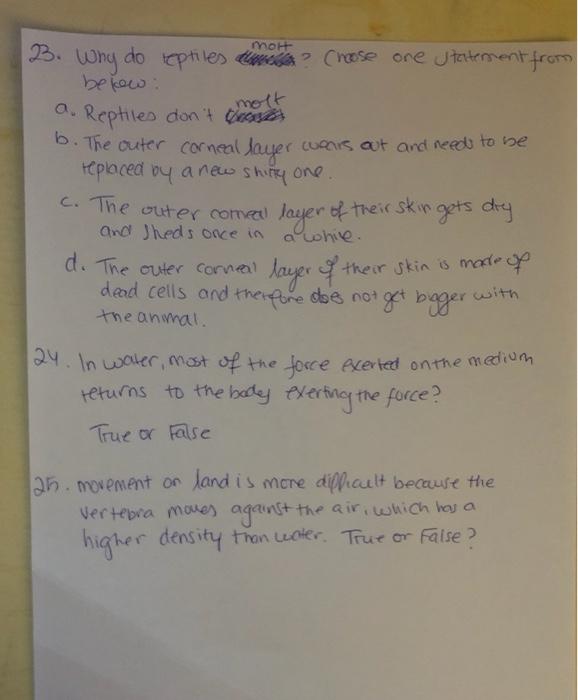 molt
23. Why do reptiles ? Choose one statement from
below:
molt
a. Reptiles don't
b. The outer corneal layer wears out and needs to be
replaced by a new shiny one.
c. The outer corneal layer of their skin gets dry
and sheds once in a while.
d. The outer corneal layer of their skin is made of
dead cells and therefore does not get bigger with
the animal.
24. In water, most of the force exerted on the medium
returns to the body exerting the force?
True or False
25. movement on land is more difficult because the
vertebra moves against the air, which has a
higher density than water. True or False?